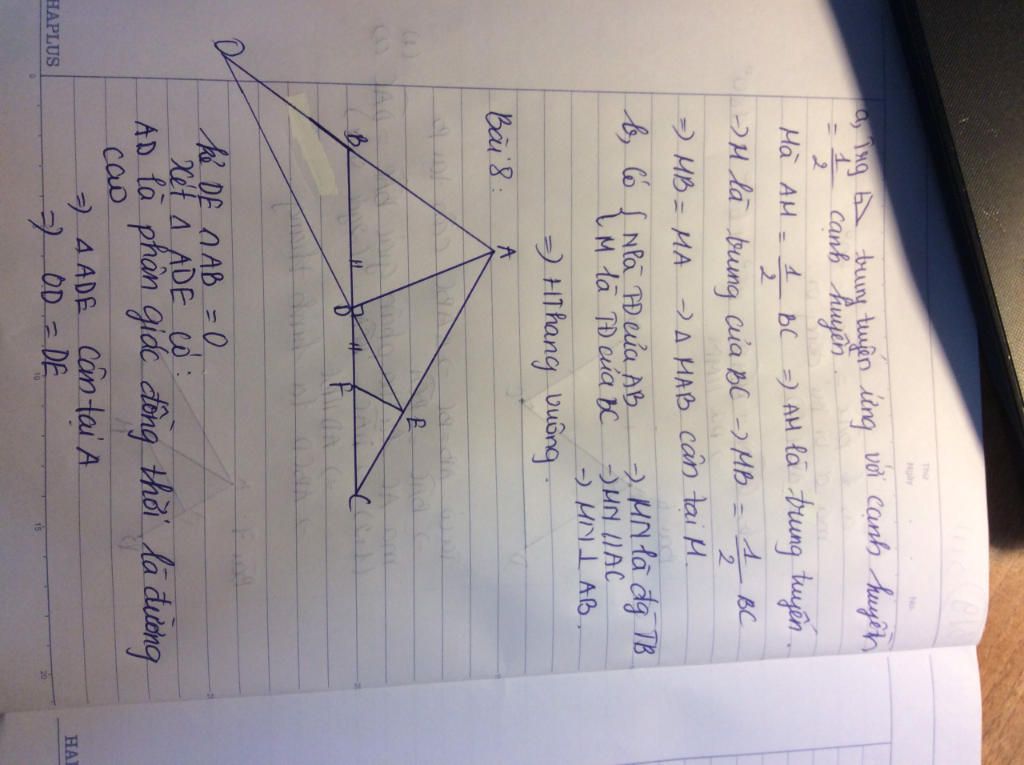 Thứ
Ngày
No.
a, Trong trung tuyến ứng với cạnh huyền
= 1/2 cạnh huyền.
Mà AM = 1/2 BC => AM là trung tuyến.
-> M là trung của BC -> MB = 1/2 BC
=> MB = MA -> Δ MAB cân tại M.
b, Có { N là TĐ của AB -> MN là đg TB
M là TĐ của BC -> MN // AC
-> MN ⊥ AB.
=> HThang vuông.
Bài 8:
A
B
D
F
E
C
O
kẻ DE ∩ AB = O
Xét Δ ADE có:
AD là phân giác đồng thời là đường
cao
=> Δ ADE cân tại A
=> OD = DE
HAPLUS
0
10
15
20
HA